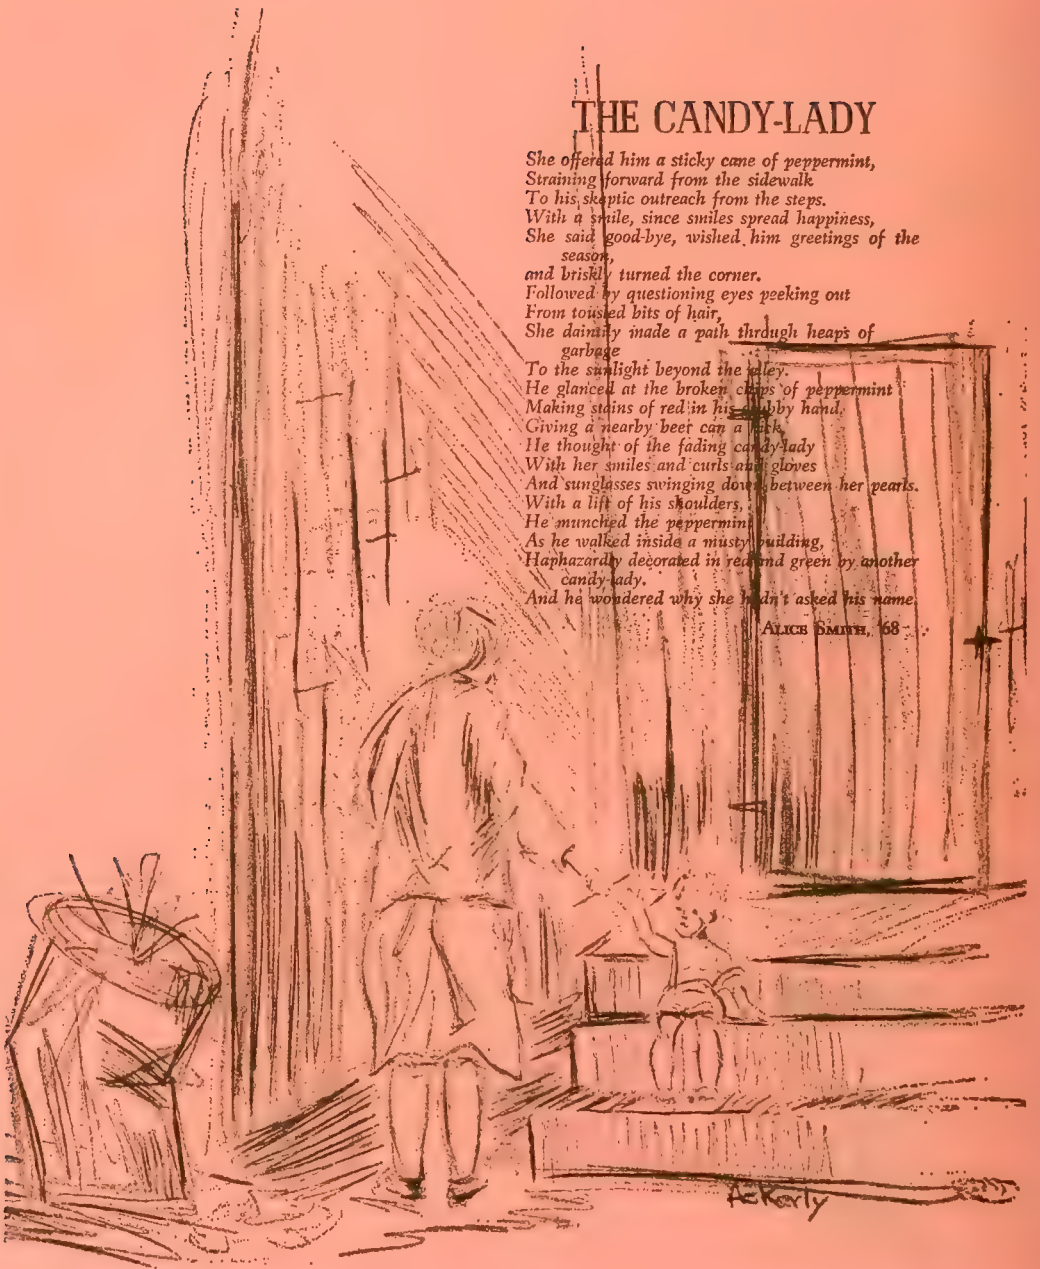 THE CANDY-LADY
She offered him a sticky cane of peppermint,
Straining forward from the sidewalk
To his skeptic outreach from the steps.
With a smile, since smiles spread happiness,
She said good-bye, wished him greetings of the
season,
and briskly turned the corner.
Followed by questioning eyes peeking out
From tousled bits of hair,
She daintily made a path through heaps of
garbage
To the sunlight beyond the alley.
He glanced at the broken chips of peppermint
Making stains of red in his grubby hand.
Giving a nearby beer can a kick,
He thought of the fading candy-lady
With her smiles and curls and gloves
And sunglasses swinging down between her pearls.
With a lift of his shoulders,
He munched the peppermint
As he walked inside a musty building,
Haphazardly decorated in red and green by another
candy-lady.
And he wondered why she hadn't asked his name.
ALICE SMITH, '68
Ackerly